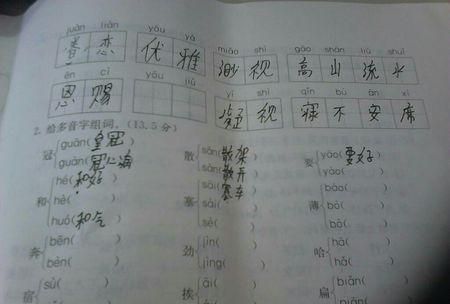 juàn liàn yōu yǎ
眷恋 优雅
miǎo shì gāo shān liú shuǐ
渺视 高山流水
ēn cì yōu liú
恩赐
yí shì qǐn bù ān xí
视 寝不安席
2. 给多音字组词。(13.5 分)
冠 guān(皇冠) 散 sǎn(散架) 要 yào(要好)
guàn(冠心病) sàn(散开) yāo( )
和 hé(和好) 塞 sāi(塞车) 薄 báo( )
hè( ) sài( ) bó( )
huó(和气) sè( ) bò( )
奔 bēn( ) 劲 jìn( ) 哈 hā( )
bèn( ) jìng( ) hǎ( )
宿 sù( ) 挨 āi( ) 扁 biǎn( )